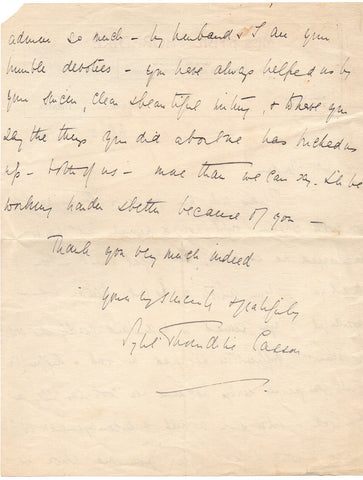 admire so much – my husband & I are your
humble devotees – you have always helped us by
your sincere, clear & beautiful writing, & to have you
say the things you did about me has bucked us
up – both of us – more than we can say. I'll be
working harder & better because of you –
Thank you very much indeed
yours very sincerely & gratefully
Sybil Thorndike Casson